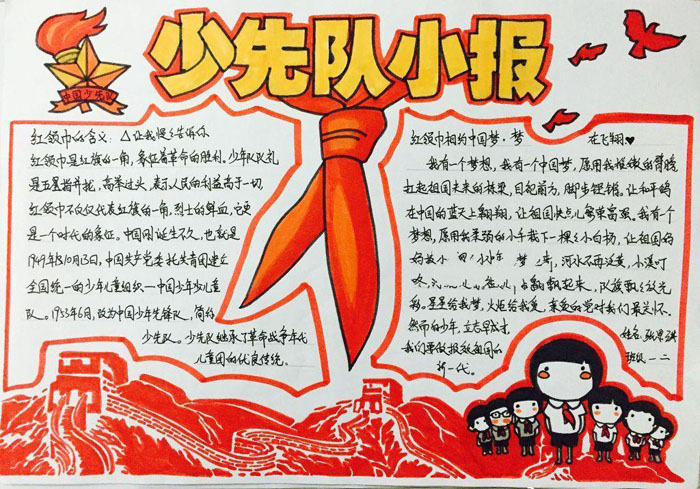 少先队小报
中国少先队
红领巾的含义：△让我慢慢告诉你
红领巾是红旗的一角，象征着革命的胜利。少年队队礼
是五星指并拢，高举过头，表示人民的利益高于一切
红领巾不仅仅代表红旗的一角，烈士的鲜血，它更
是一个时代的象征。中国刚诞生不久，也就是
1949年10月13日，中国共产党委托共青团建立
全国统一的少年儿童组织—中国少年少儿童
队。1953年6月，改为中国少年先锋队，简称
少先队。少先队继承了革命战争年代
儿童团的优良传统。
红领巾相约中国梦，梦 在飞翔♥
我有一个梦想，我有一个中国梦，愿用我稚嫩的臂膀
扛起祖国未来的栋梁，目视前方，脚步铿锵。让和平鸽
在中国的蓝天上翱翔，让祖国快点儿繁荣富强。我有一个
梦想，愿用我柔弱的小手栽下一棵棵小白杨，让祖国妈
妈 梦 河水不再泛黄，小溪叮
咚 飘起来，民族 放光
彩。星星给我梦，火炬给我爱，亲爱的党对我们最关怀。
然而的少年，立志早成才
我们要做报效祖国的
新一代。
姓名：张
班级 一 二